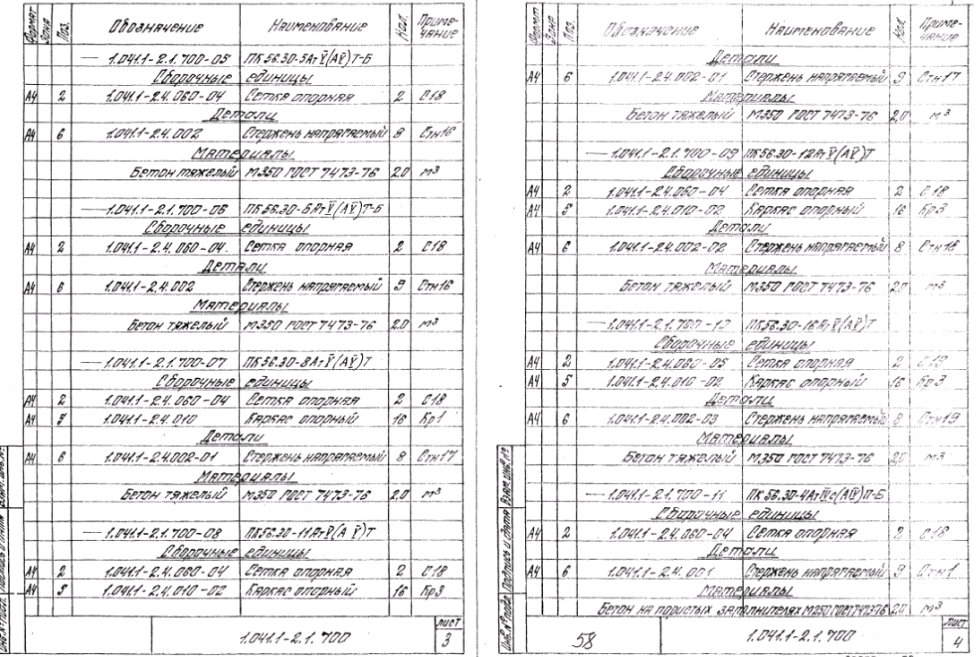 Формат Зона Поз. Обозначение Наименование Кол. Приме-
чание
— 1.041.1-2.1.700-05 ПК56.30-5АтV(АV)Т-Б
Сборочные единицы
А4 2 1.041.1-2.4.060-04 Сетка опорная 2 С18
Детали
А4 6 1.041.1-2.4.002 Стержень напрягаемый 8 Стн16
Материалы
Бетон тяжелый М350 ГОСТ 7473-76 2.0 м³
— 1.041.1-2.1.700-06 ПК56.30-6АтV(АV)Т-Б
Сборочные единицы
А4 2 1.041.1-2.4.060-04. Сетка опорная 2 С18
Детали
А4 6 1.041.1-2.4.002 Стержень напрягаемый 9 Стн16
Материалы
Бетон тяжелый М350 ГОСТ 7473-76 2.0 м³
— 1.041.1-2.1.700-07 ПК56.30-8АтV(АV)Т
Сборочные единицы
А4 2 1.041.1-2.4.060-04 Сетка опорная 2 С18
А4 5 1.041.1-2.4.010 Каркас опорный 16 Кр1
Детали
А4 6 1.041.1-2.4.002-01 Стержень напрягаемый 8 Стн17
Материалы
Бетон тяжелый М350 ГОСТ 7473-76 2,0 м³
— 1.041.1-2.1.700-08 ПК56.30-11АтV(АV)Т
Сборочные единицы
А4 2 1.041.1-2.4.060-04 Сетка опорная 2 С18
А4 5 1.041.1-2.4.010-02 Каркас опорный 16 Кр3
1.041.1-2.1.700
лист
3
Формат Зона Поз. Обозначение Наименование Кол. Приме-
чание
Детали
А4 6 1.041.1-2.4.002-01 Стержень напрягаемый 9 Стн17
Материалы
Бетон тяжелый М350 ГОСТ 7473-76 2,0 м³
— 1.041.1-2.1.700-09 ПК56.30-12АтV(АV)Т
Сборочные единицы
А4 2 1.041.1-2.4.060-04 Сетка опорная 2 С18
А4 5 1.041.1-2.4.010-02 Каркас опорный 16 Кр3
Детали
А4 6 1.041.1-2.4.002-02 Стержень напрягаемый 8 Стн18
Материалы
Бетон тяжелый М350 ГОСТ 7473-76 2,0 м³
— 1.041.1-2.1.700-10 ПК56.30-16АтV(АV)Т
Сборочные единицы
А4 2 1.041.1-2.4.060-05 Сетка опорная 2 С19
А4 5 1.041.1-2.4.010-02 Каркас опорный 16 Кр3
Детали
А4 6 1.041.1-2.4.002-03 Стержень напрягаемый 8 Стн19
Материалы
Бетон тяжелый М350 ГОСТ 7473-76 2,0 м³
— 1.041.1-2.1.700-11 ПК56.30-4АтIVс(АIV)П-Б
Сборочные единицы
А4 2 1.041.1-2.4.060-04 Сетка опорная 2 С18
Детали
А4 6 1.041.1-2.4.001 Стержень напрягаемый 9 Стн1
Материалы
Бетон на пористых заполнителях М250 ГОСТ 7473-76 2,0 м³
Инв.№ подл. Подпись и дата Взам.инв.№
58
1.041.1-2.1.700
лист
4